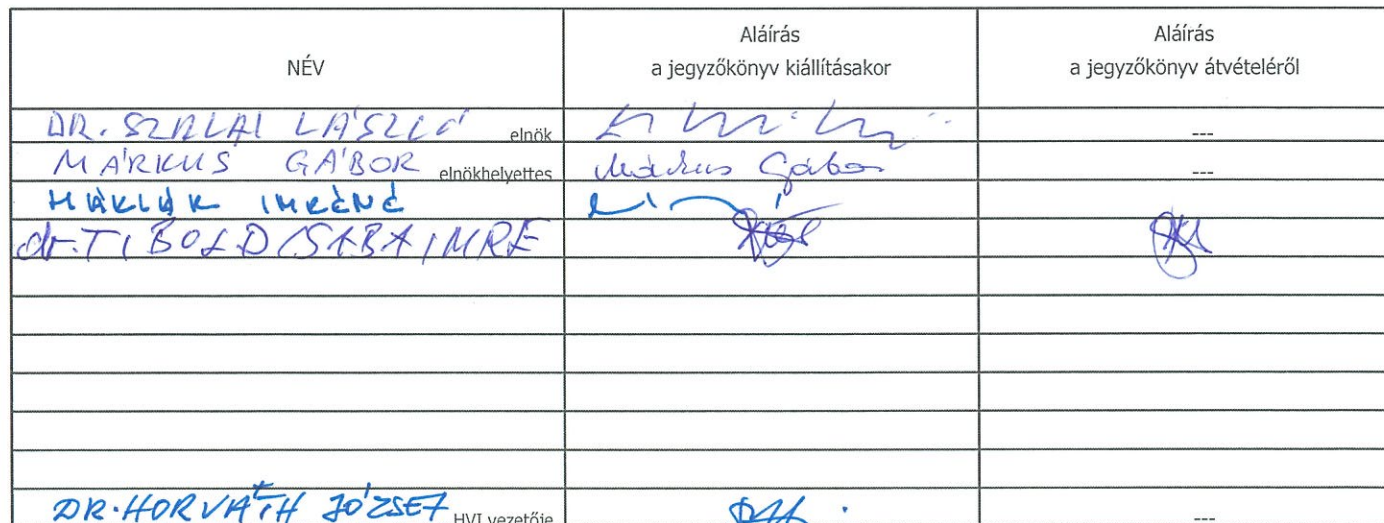 NÉV
Aláírás
a jegyzőkönyv kiállításakor
Aláírás
a jegyzőkönyv átvételéről
DR. SZALAI LÁSZLÓ elnök ---
MÁRKUS GÁBOR elnökhelyettes Márkus Gábor ---
IMRÉNÉ
dr. TIBOLD CSABA IMRE
DR. HORVÁTH JÓZSEF HVI vezetője ---